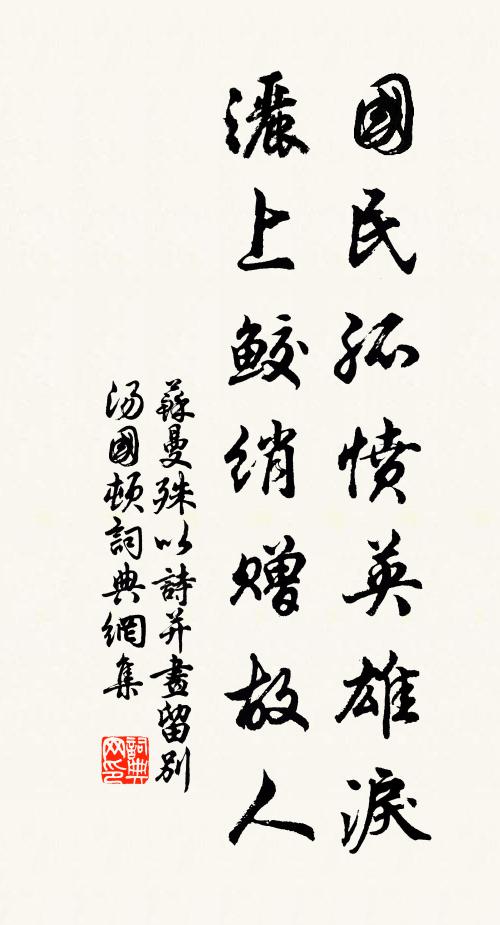 國民孤憤英雄淚
灑上鮫綃贈故人
蘇曼殊以詩并畫留別
湯國頓詞典網集
詞典
网印